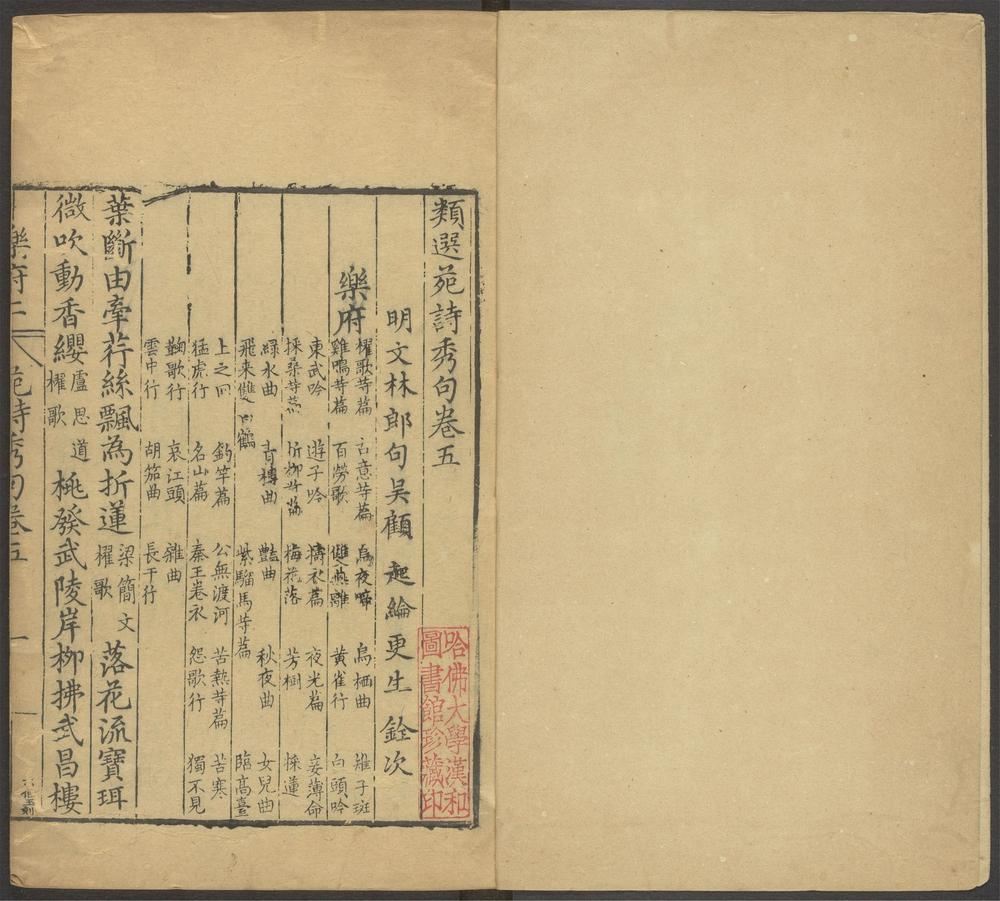 類選苑詩秀句卷五
明文林郎句吳顧 起綸更生 銓次
樂府
櫂歌等篇 古意等篇 烏夜啼 烏栖曲 雉子斑
雞鳴等篇 百勞歌 雙燕離 黃雀行 白頭吟
東武吟 遊子吟 擣衣篇 夜光篇 妾薄命
採桑等篇 折柳等篇 梅花落 芳樹 採蓮
綠水曲 青樓曲 豔曲 秋夜曲 女兒曲
飛來雙白鶴 紫騮馬等篇 臨高臺
上之回 釣竿篇 公無渡河 苦熱等篇 苦寒
猛虎行 名山篇 秦王卷衣 怨歌行 獨不見
鞠歌行 哀江頭 雜曲
雲中行 胡笳曲 長干行
葉斷由牽荇絲飄為折蓮 梁簡文 櫂歌 落花流寶珥
微吹動香纓 盧思道 櫂歌 桃發武陵岸柳拂武昌樓
樂府二 苑詩秀句卷五 一
哈佛大學漢和
圖書館珍藏印